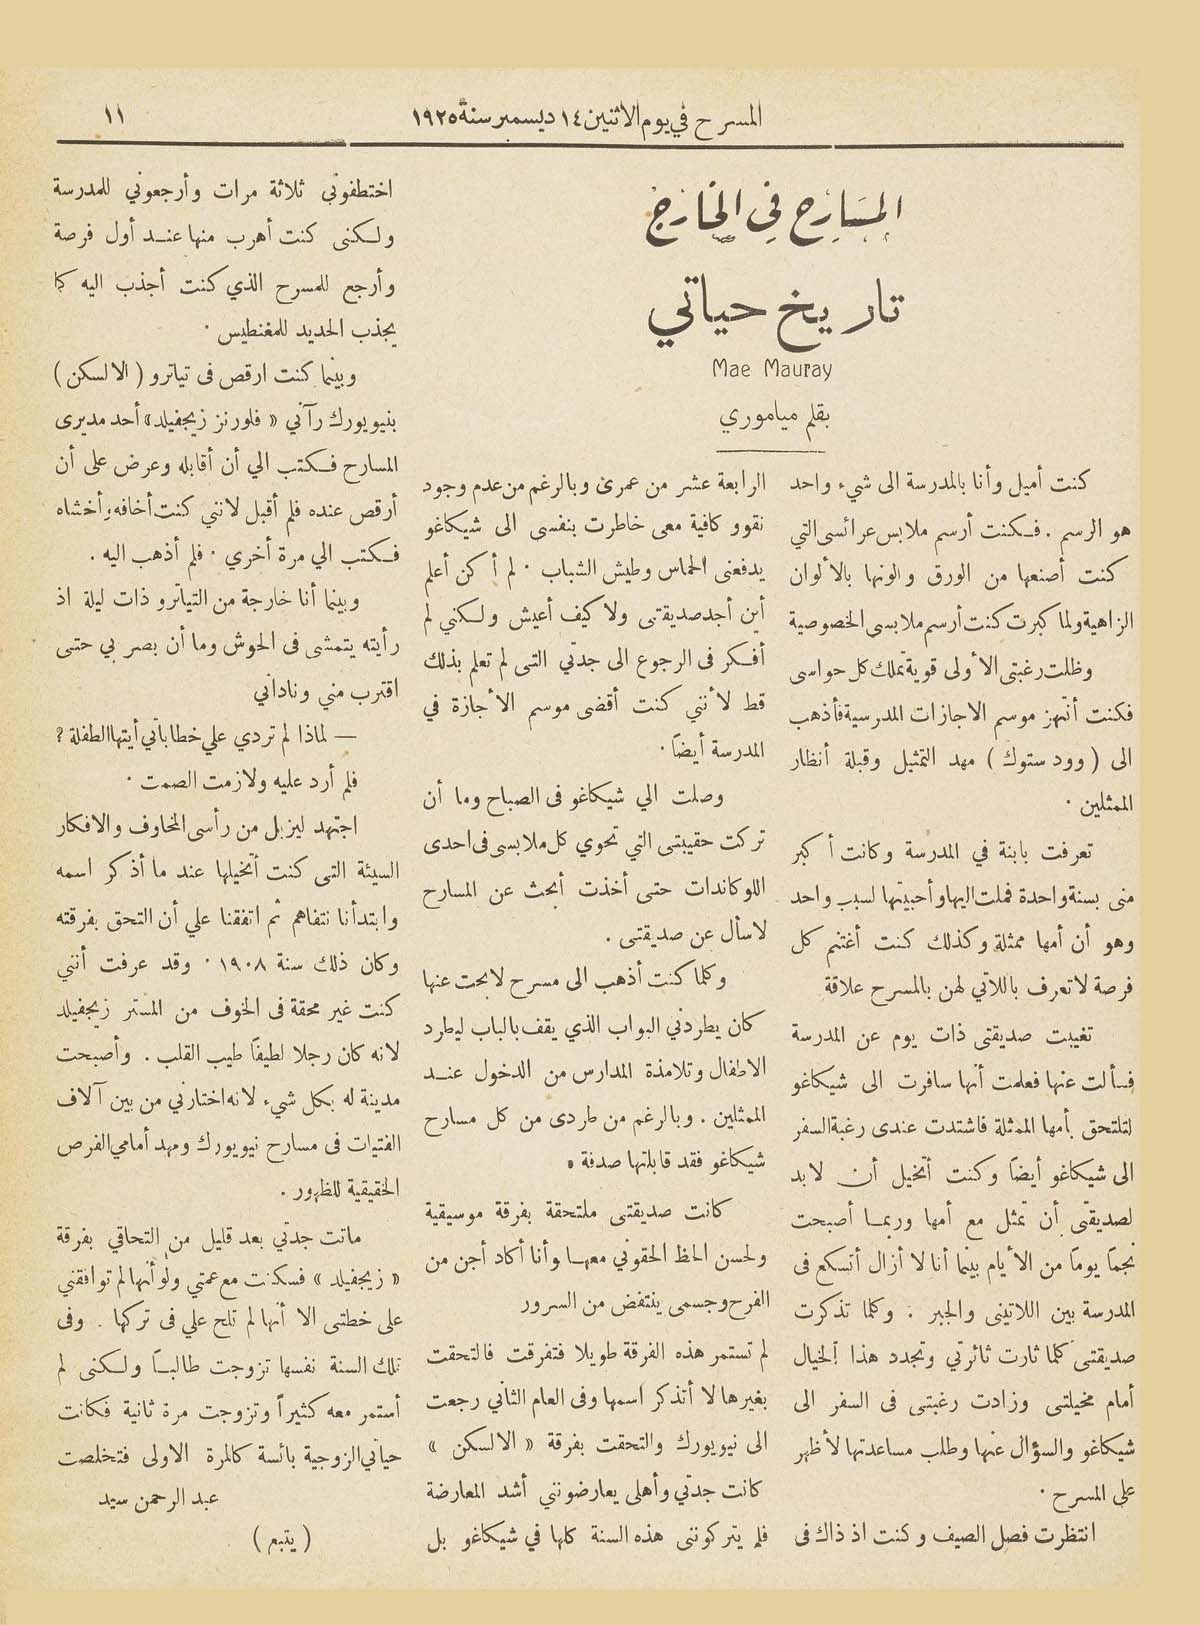 المسرح في يوم الاثنين ١٤ ديسمبر سنة ١٩٢٥
١١
المسارح في الخارج
تاريخ حياتي
Mae Mauray
بقلم مياموري
كنت أميل وأنا بالمدرسة الى شيء واحد
هو الرسم . فكنت أرسم ملابس عرائسى التي
كنت أصنعها من الورق والونها بالألوان
الزاهية ولما كبرت كنت أرسم ملابسى الخصوصية
وظلت رغبتى الأولى قوية تملك كل حواسى
فكنت أنتهز موسم الاجازات المدرسية فأذهب
الى ( وود ستوك ) مهد التمثيل وقبلة أنظار
الممثلين .
تعرفت بابنة في المدرسة وكانت أكبر
منى بسنة واحدة فملت اليها وأحببتها لسبب واحد
وهو أن أمها ممثلة وكذلك كنت أغتنم كل
فرصة لاتعرف باللاتي لهن بالمسرح علاقة
تغيبت صديقتى ذات يوم عن المدرسة
فسألت عنها فعلمت أنها سافرت الى شيكاغو
لتلتحق بأمها الممثلة فاشتدت عندى رغبة السفر
الى شيكاغو أيضاً وكنت أتخيل أن لابد
لصديقتى أن تمثل مع أمها وربما أصبحت
نجماً يوماً من الأيام بينما أنا لا أزال أتسكع فى
المدرسة بين اللاتينى والجبر . وكلما تذكرت
صديقتى كلما ثارت ثائرتي وتجدد هذا الخيال
أمام مخيلتى وزادت رغبتى فى السفر الى
شيكاغو والسؤال عنها وطلب مساعدتها لأظهر
على المسرح .
انتظرت فصل الصيف وكنت اذ ذاك فى
الرابعة عشر من عمرى وبالرغم من عدم وجود
نقود كافية معى خاطرت بنفسى الى شيكاغو
يدفعنى الحماس وطيش الشباب . لم أكن أعلم
أين أجد صديقتى ولا كيف أعيش ولكني لم
أفكر فى الرجوع الى جدتي التى لم تعلم بذلك
قط لأنني كنت أقضى موسم الأجازة في
المدرسة أيضاً .
وصلت الي شيكاغو فى الصباح وما أن
تركت حقيبتى التي تحوي كل ملابسى فى احدى
اللوكاندات حتى أخذت أبحث عن المسارح
لاسأل عن صديقتى .
وكلما كنت أذهب الى مسرح لابحث عنها
كان يطردني البواب الذي يقف بالباب ليطرد
الاطفال وتلامذة المدارس من الدخول عند
الممثلين . وبالرغم من طردى من كل مسارح
شيكاغو فقد قابلتها صدفة .
كانت صديقتى ملتحقة بفرقة موسيقية
ولحسن الحظ الحقوني معها وأنا أكاد أجن من
الفرح وجسمى ينتفض من السرور
لم تستمر هذه الفرقة طويلا فتفرقت فالتحقت
بغيرها لا أتذكر اسمها وفى العام الثاني رجعت
الى نيويورك والتحقت بفرقة « الالسكن »
كانت جدتي وأهلى يعارضونني أشد المعارضة
فلم يتركوننى هذه السنة كلها في شيكاغو بل
اختطفوني ثلاثة مرات وأرجعوني للمدرسة
ولكنى كنت أهرب منها عند أول فرصة
وأرجع للمسرح الذي كنت أجذب اليه كما
يجذب الحديد للمغنطيس .
وبينما كنت ارقص فى تياترو ( الالسكن )
بنيويورك رآني « فلورنز زيجفيلد» أحد مديرى
المسارح فكتب الي أن أقابله وعرض على أن
أرقص عنده فلم أقبل لانني كنت أخافه وأخشاه
فكتب الي مرة أخري . فلم أذهب اليه .
وبينما أنا خارجة من التياترو ذات ليلة اذ
رأيته يتمشى فى الحوش وما أن بصر بي حتى
اقترب مني وناداني
— لماذا لم تردي علي خطاباتي أيتها الطفلة ؟
فلم أرد عليه ولازمت الصمت .
اجتهد ليزيل من رأسى المخاوف والافكار
السيئة التى كنت أتخيلها عند ما أذكر اسمه
وابتدأنا نتفاهم ثم اتفقنا علي أن التحق بفرقته
وكان ذلك سنة ١٩٠٨ . وقد عرفت أنني
كنت غير محقة فى الخوف من المستر زيجفيلد
لانه كان رجلا لطيفاً طيب القلب . وأصبحت
مدينة له بكل شيء لانه اختارني من بين آلاف
الفتيات فى مسارح نيويورك ومهد أمامي الفرص
الحقيقية للظهور .
ماتت جدتي بعد قليل من التحاقي بفرقة
« زيجفيلد » فسكنت مع عمتي ولو أنها لم توافقني
على خطتى الا أنها لم تلح علي فى تركها . وفى
تلك السنة نفسها تزوجت طالباً ولكنى لم
أستمر معه كثيراً وتزوجت مرة ثانية فكانت
حياتي الزوجية بائسة كالمرة الاولى فتخلصت
عبد الرحمن سيد
( يتبع )